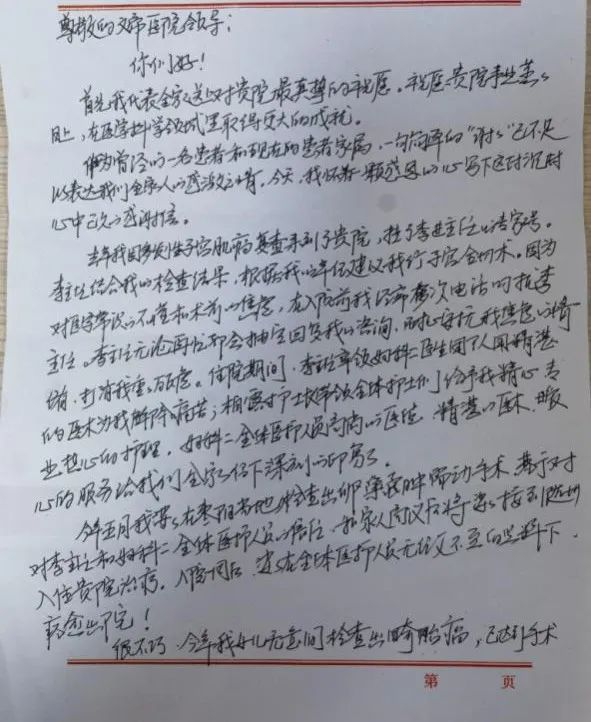 尊敬的文席医院领导：
你们好！
首先我代表全家送对贵院最真挚的祝愿。祝愿贵院事业蒸蒸
日上，在医学科学领域里取得更大的成就。
作为曾经的一名患者和现在的患者家属，一句简单的“谢谢”已不足
以表达我们全家人的感激之情，今天，我怀着一颗感恩的心写下这封沉甸
心中已久的感谢信。
去年我因多发性子宫肌瘤复查来到了贵院，挂了李主任的专家号。
李主任结合我的检查结果，根据我的年纪建议我行子宫全切术。因为
对医学常识的不懂和术前的焦虑，在入院前我经常多次电话叨扰李
主任。李主任无论再忙都会抽空回复我的咨询，而安抚我焦急的情
绪，打消我重重顾虑。住院期间，李主任带领妇科二医生团队用精湛
的医术为我解除病苦；相 护士长带领全体护士们给予我精心专
业热心的护理，妇科二全体医护人员高尚的医德、精湛的医术、暖
心的服务给我们全家留下深刻的印象。
今年五月我婆婆在枣阳当地检查出卵巢囊肿需动手术，基于对
对李主任和妇科二全体医护人员的信任，我家人商议后将婆婆接到
入住贵院治疗。入院间后，婆婆在全体医护人员无微不至的照料下，
病愈出院！
很不巧，今年我女儿无意间检查出畸胎瘤，已达到手术
第 页